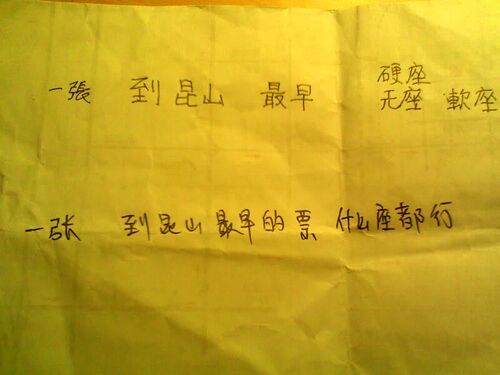 一張 到昆山 最早 硬座
无座 軟座
一张 到昆山最早的票 什么座都行